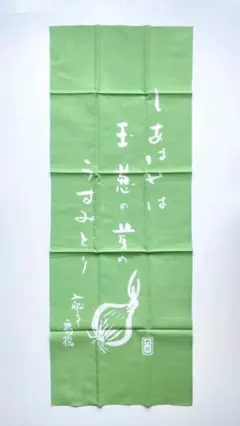 しあはせは
玉葱の芽の
うすみどり